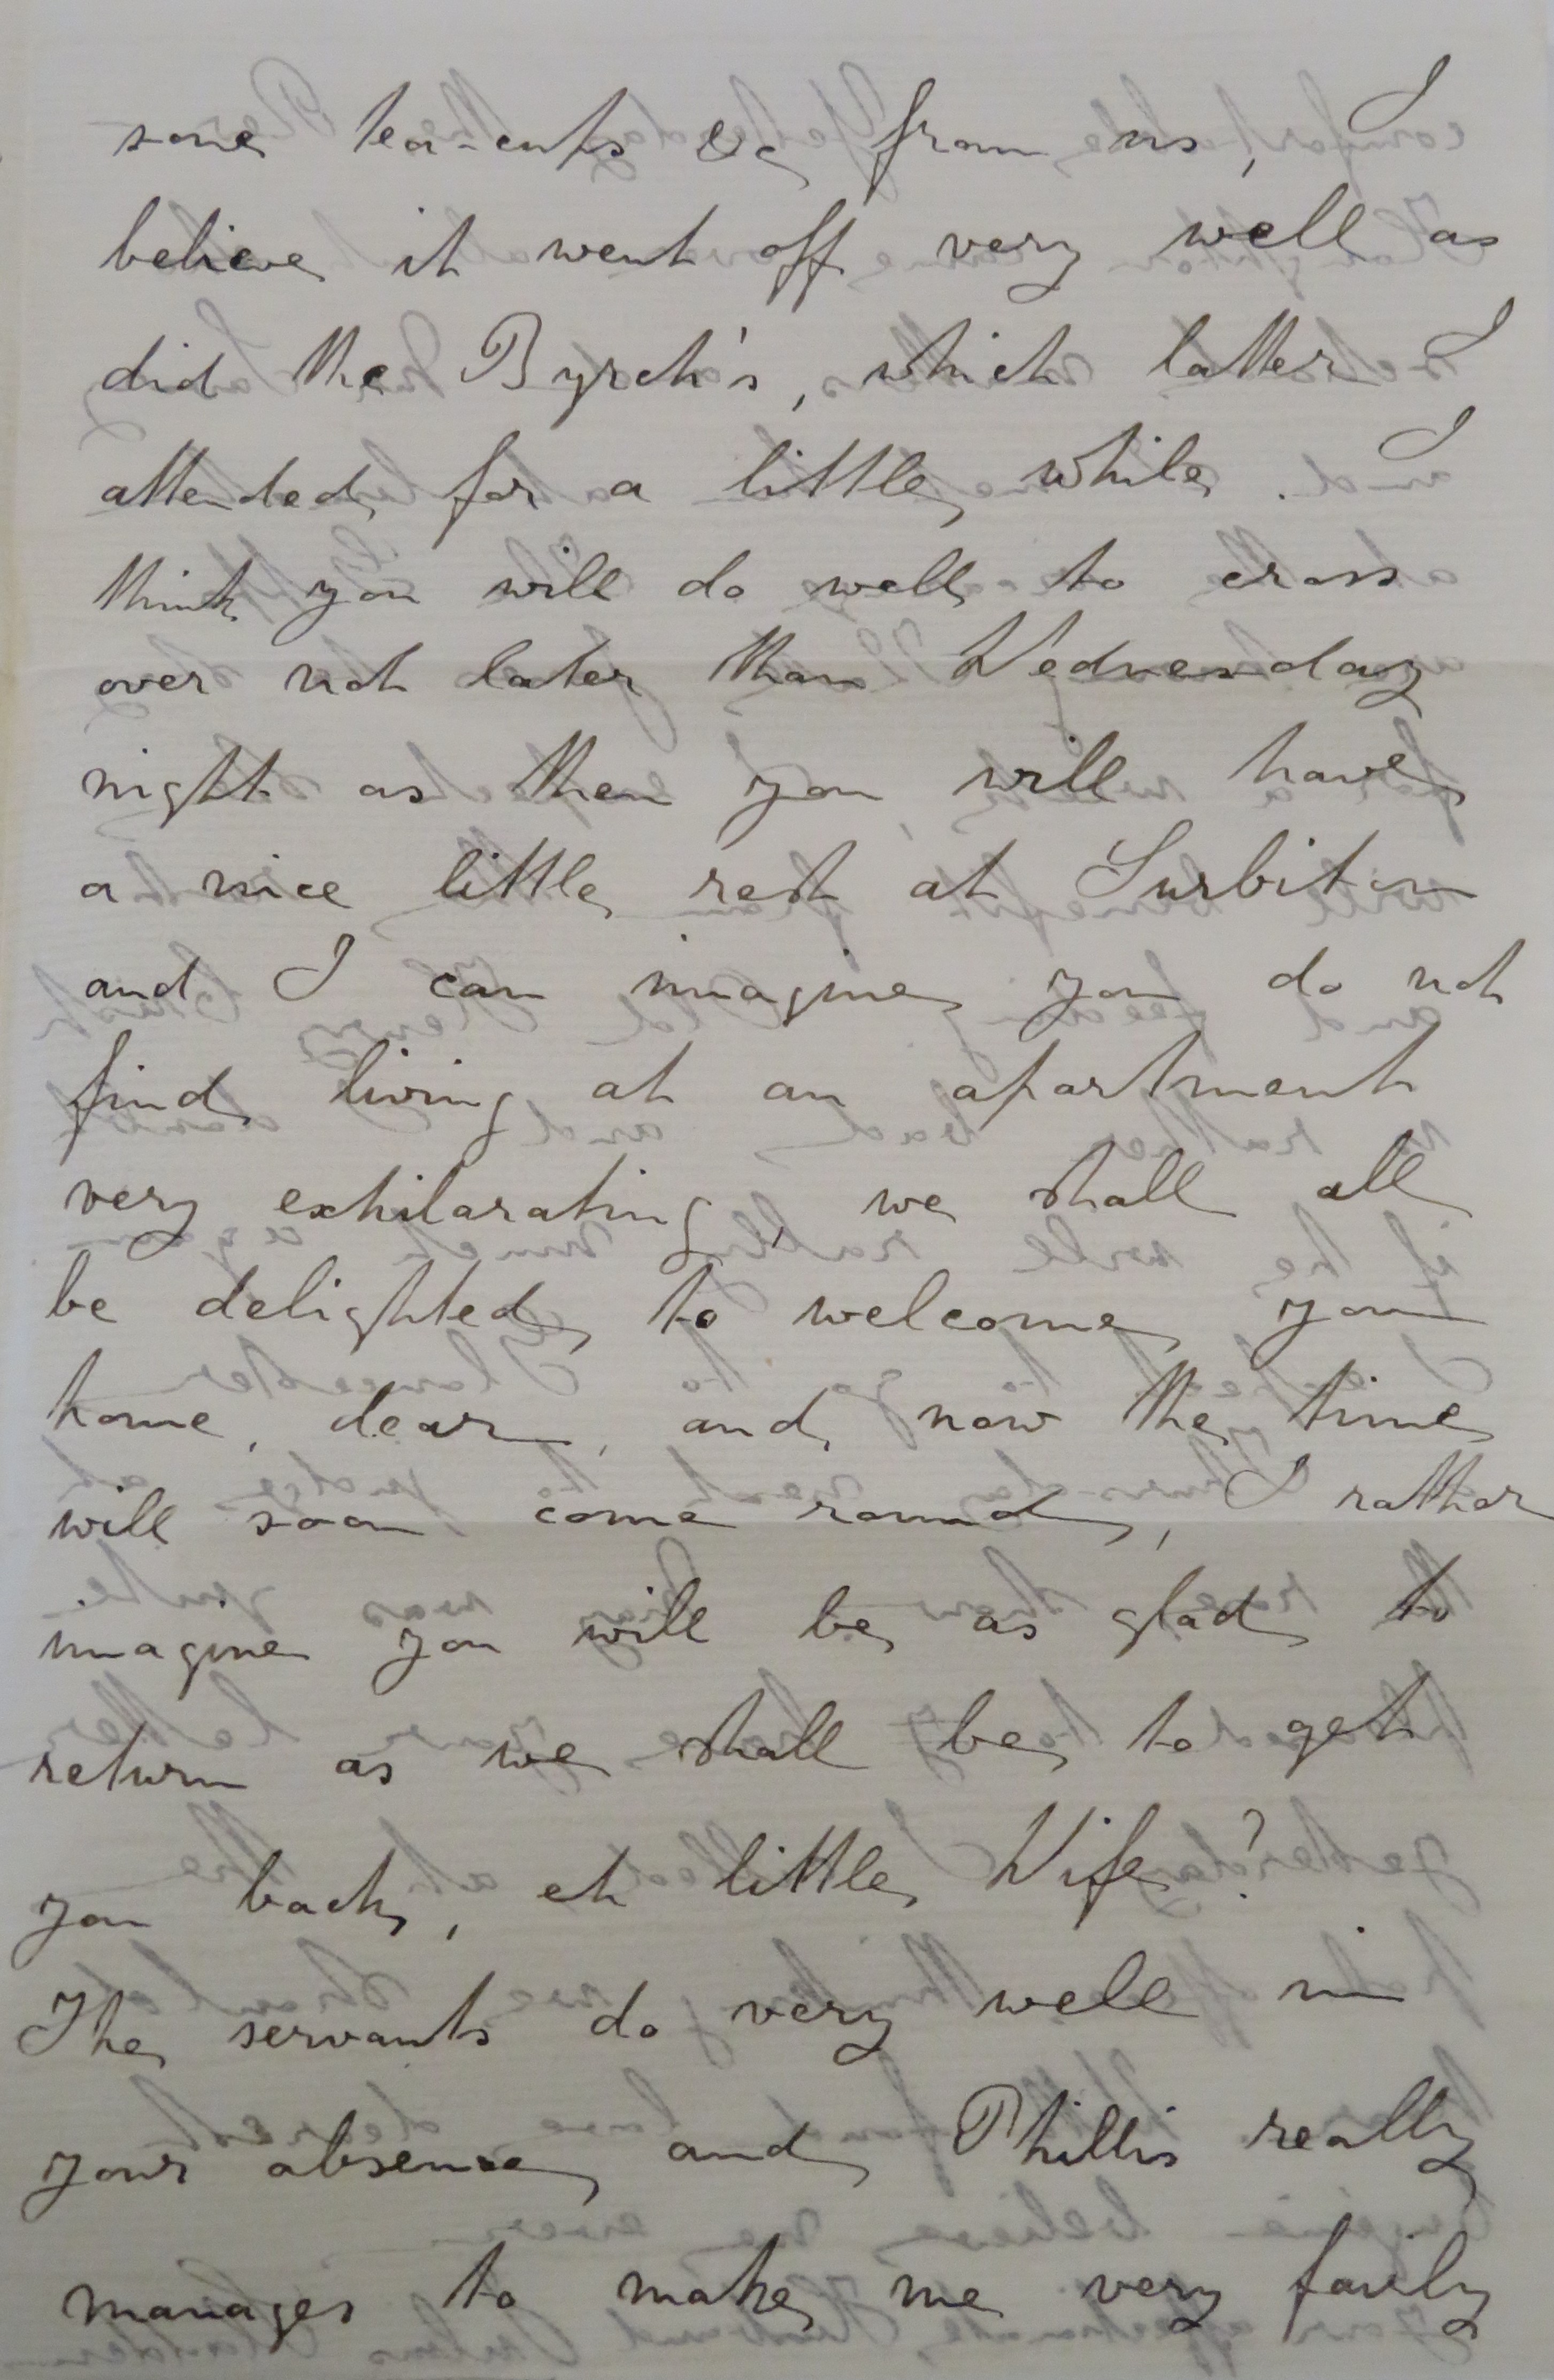 some tea-cups &c from us, I
believe it went off very well as
did the Byrch's, which latter I
attended for a little while. I
think you will do well to cross
over not later than Wednesday
night as then you will have
a nice little rest at Surbiton
and I can imagine you do not
find living at an apartment
very exhilarating, we shall all
be delighted to welcome you
home, dear, and now the time
will soon come round, I rather
imagine you will be as glad to
return as we shall be to get
you back, eh little Wife?
The servants do very well in
your absence and Phillis really
manages to make me very fairly